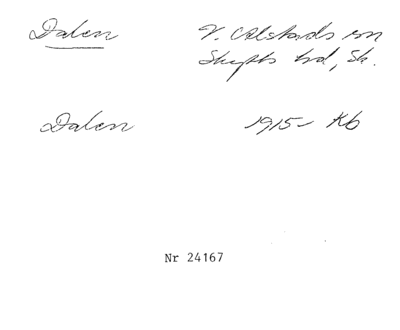 Dalen V. Alstads sn
Skytts hd, Sk.
Dalen 1915- Kb
Nr 24167